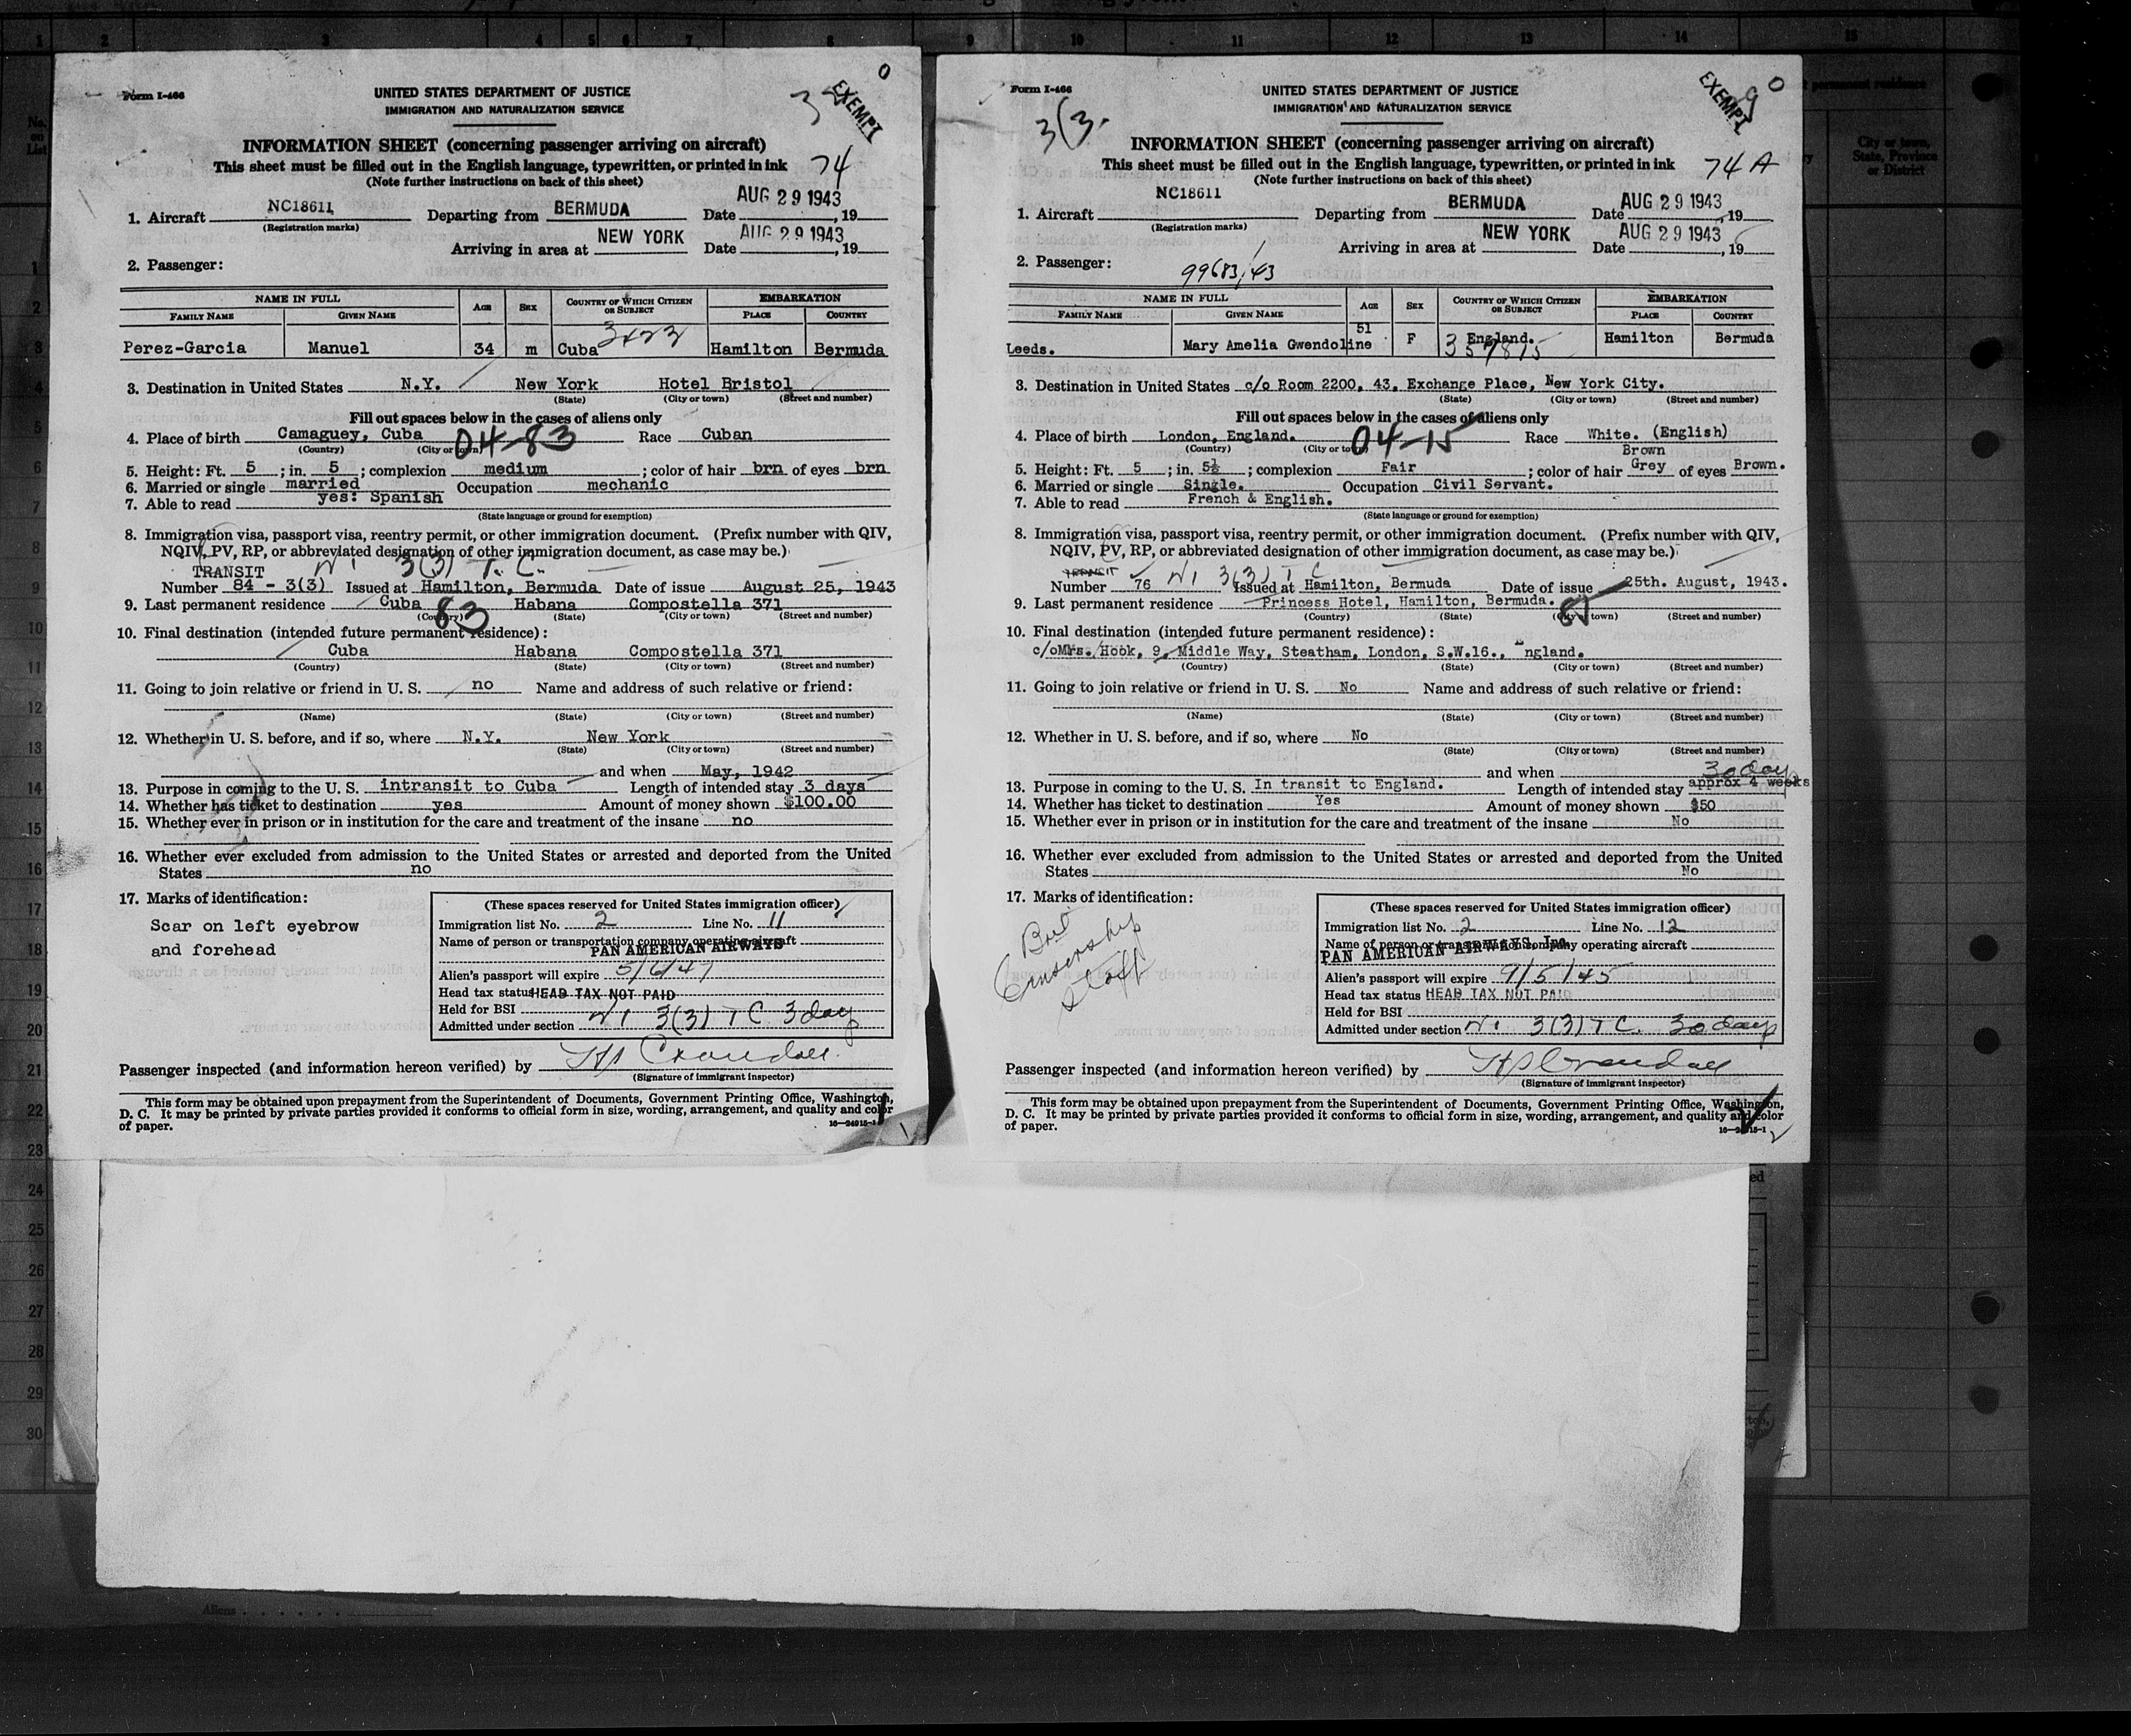 Form I-466
O
EXEMPT
UNITED STATES DEPARTMENT OF JUSTICE
IMMIGRATION AND NATURALIZATION SERVICE
INFORMATION SHEET (concerning passenger arriving on aircraft)
This sheet must be filled out in the English language, typewritten, or printed in ink
74
(Note further instructions on back of this sheet)
1. Aircraft NC18611 Departing from BERMUDA Date AUG 29 1943, 19
(Registration marks)
Arriving in area at NEW YORK Date AUG 29 1943, 19
2. Passenger:
NAME IN FULL AGE SEX COUNTRY OF WHICH CITIZEN OR SUBJECT EMBARKATION
FAMILY NAME GIVEN NAME PLACE COUNTRY
Perez-Garcia Manuel 34 m Cuba Hamilton Bermuda
3. Destination in United States N.Y. New York Hotel Bristol
(State) (City or town) (Street and number)
Fill out spaces below in the cases of aliens only
4. Place of birth Camaguey, Cuba 04-83 Race Cuban
(Country) (City or town)
5. Height: Ft. 5 ; in. 5 ; complexion medium ; color of hair brn of eyes brn
6. Married or single married Occupation mechanic
7. Able to read yes: Spanish
(State language or ground for exemption)
8. Immigration visa, passport visa, reentry permit, or other immigration document. (Prefix number with QIV,
NQIV, PV, RP, or abbreviated designation of other immigration document, as case may be.)
TRANSIT 3(3) T.C.
Number 84 - 3(3) Issued at Hamilton, Bermuda Date of issue August 25, 1943
9. Last permanent residence Cuba Habana Compostella 371
(Country) 83 (State) (City or town) (Street and number)
10. Final destination (intended future permanent residence):
Cuba Habana Compostella 371
(Country) (State) (City or town) (Street and number)
11. Going to join relative or friend in U. S. no Name and address of such relative or friend:
(Name) (State) (City or town) (Street and number)
12. Whether in U. S. before, and if so, where N.Y. New York
(State) (City or town) (Street and number)
and when May, 1942
13. Purpose in coming to the U. S. intransit to Cuba Length of intended stay 3 days
14. Whether has ticket to destination yes Amount of money shown $100.00
15. Whether ever in prison or in institution for the care and treatment of the insane no
16. Whether ever excluded from admission to the United States or arrested and deported from the United
States no
17. Marks of identification:
Scar on left eyebrow
and forehead
(These spaces reserved for United States immigration officer)
Immigration list No. 2 Line No. 11
Name of person or transportation company operating aircraft
PAN AMERICAN AIRWAYS
Alien's passport will expire 5/6/47
Head tax status HEAD TAX NOT PAID
Held for BSI
Admitted under section 3(3) TC 3 day
Passenger inspected (and information hereon verified) by H Crandall
(Signature of immigrant inspector)
This form may be obtained upon prepayment from the Superintendent of Documents, Government Printing Office, Washington,
D. C. It may be printed by private parties provided it conforms to official form in size, wording, arrangement, and quality and color
of paper.
16—24915-1
Form I-466
O
EXEMPT
3(3.
UNITED STATES DEPARTMENT OF JUSTICE
IMMIGRATION AND NATURALIZATION SERVICE
INFORMATION SHEET (concerning passenger arriving on aircraft)
This sheet must be filled out in the English language, typewritten, or printed in ink
74 A
(Note further instructions on back of this sheet)
1. Aircraft NC18611 Departing from BERMUDA Date AUG 29 1943, 19
(Registration marks)
Arriving in area at NEW YORK Date AUG 29 1943, 19
2. Passenger: 99683/43
NAME IN FULL AGE SEX COUNTRY OF WHICH CITIZEN OR SUBJECT EMBARKATION
FAMILY NAME GIVEN NAME PLACE COUNTRY
Leeds. Mary Amelia Gwendoline 51 F England. Hamilton Bermuda
3. Destination in United States c/o Room 2200, 43, Exchange Place, New York City.
(State) (City or town) (Street and number)
Fill out spaces below in the cases of aliens only
4. Place of birth London, England. 04-15 Race White. (English)
(Country) (City or town)
Brown
5. Height: Ft. 5 ; in. 5½ ; complexion Fair ; color of hair Grey of eyes Brown.
6. Married or single Single. Occupation Civil Servant.
7. Able to read French & English.
(State language or ground for exemption)
8. Immigration visa, passport visa, reentry permit, or other immigration document. (Prefix number with QIV,
NQIV, PV, RP, or abbreviated designation of other immigration document, as case may be.)
TRANSIT 3(3) TC
Number 76 Issued at Hamilton, Bermuda Date of issue 25th. August, 1943.
9. Last permanent residence Princess Hotel, Hamilton, Bermuda.
(Country) (State) (City or town) (Street and number)
10. Final destination (intended future permanent residence):
c/oMrs. Hook, 9, Middle Way, Steatham, London, S.W.16., England.
(Country) (State) (City or town) (Street and number)
11. Going to join relative or friend in U. S. No Name and address of such relative or friend:
(Name) (State) (City or town) (Street and number)
12. Whether in U. S. before, and if so, where No
(State) (City or town) (Street and number)
and when
30 day
13. Purpose in coming to the U. S. In transit to England. Length of intended stay approx 4 weeks
14. Whether has ticket to destination Yes Amount of money shown $50
15. Whether ever in prison or in institution for the care and treatment of the insane No
16. Whether ever excluded from admission to the United States or arrested and deported from the United
States No
17. Marks of identification:
Brit
Censorship
Staff
(These spaces reserved for United States immigration officer)
Immigration list No. 2 Line No. 12
Name of person or transportation company operating aircraft
PAN AMERICAN AIRWAYS, Inc.
Alien's passport will expire 9/5/45
Head tax status HEAD TAX NOT PAID
Held for BSI
Admitted under section 3(3) TC. 30 day
Passenger inspected (and information hereon verified) by HS Crandall
(Signature of immigrant inspector)
This form may be obtained upon prepayment from the Superintendent of Documents, Government Printing Office, Washington,
D. C. It may be printed by private parties provided it conforms to official form in size, wording, arrangement, and quality and color
of paper.